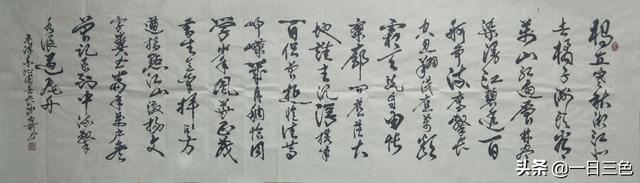 独立寒秋湘江北
去橘子洲头看
万山红遍层林尽
染漫江碧透百
舸争流鹰击长
空鱼翔浅底万类
霜天竞自由怅
寥廓问苍茫大
地谁主沉浮携来
百侣曾游忆往昔
峥嵘岁月稠恰同
学少年风华正茂
书生意气挥斥方
遒指点江山激扬文
字粪土当年万户侯
曾记否到中流击
水浪遏飞舟
头条 @一日三色